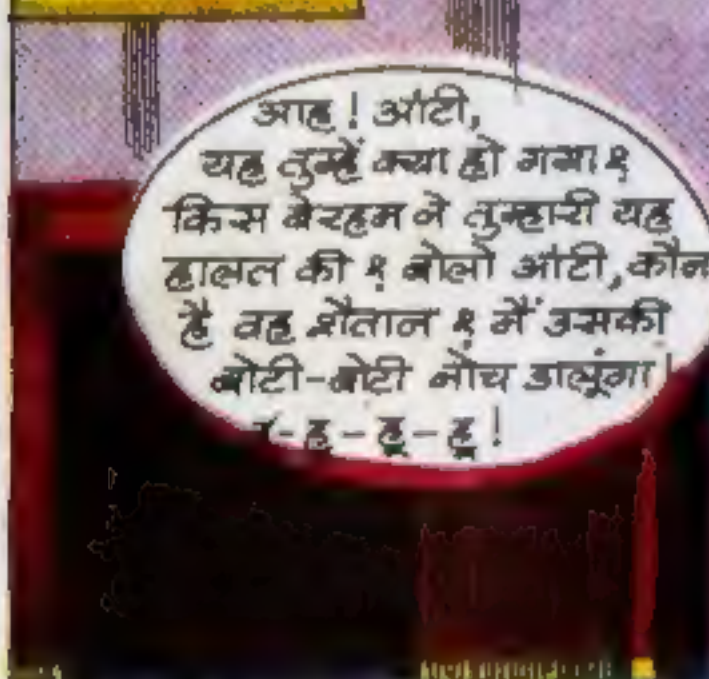 आह ! आंटी,
यह तुम्हें क्या हो गया ?
किस बेरहम ने तुम्हारी यह
हालत की ? बोलो आंटी, कौन
है वह शैतान ? मैं उसकी
बोटी-बोटी नोच डालूंगा !
-ह-हू-हू !